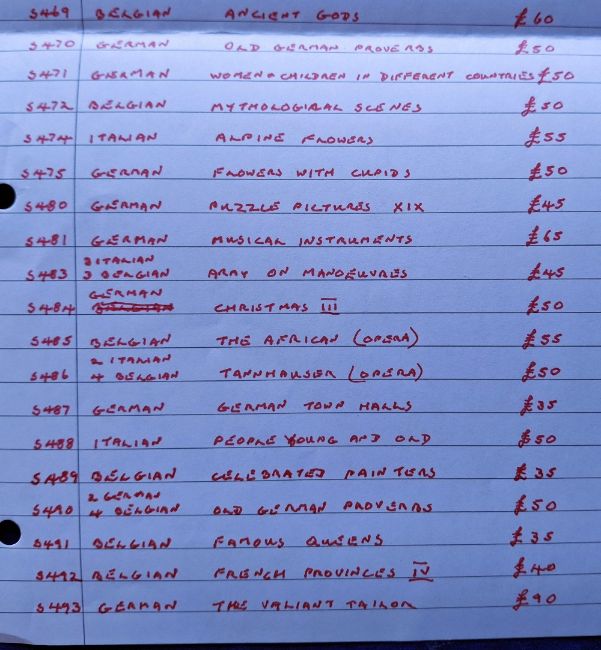 S469 BELGIAN ANCIENT GODS £60
S470 GERMAN OLD GERMAN PROVERBS £50
S471 GERMAN WOMEN & CHILDREN IN DIFFERENT COUNTRIES £50
S472 BELGIAN MYTHOLOGICAL SCENES £50
S474 ITALIAN ALPINE FLOWERS £55
S475 GERMAN FLOWERS WITH CUPIDS £50
S480 GERMAN PUZZLE PICTURES XIX £45
S481 GERMAN MUSICAL INSTRUMENTS £65
3 ITALIAN
S483 3 BELGIAN ARMY ON MANOEUVRES £45
GERMAN
S484 BELGIAN CHRISTMAS III £50
S485 BELGIAN THE AFRICAN (OPERA) £55
2 ITALIAN
S486 4 BELGIAN TANNHAUSER (OPERA) £50
S487 GERMAN GERMAN TOWN HALLS £35
S488 ITALIAN PEOPLE YOUNG AND OLD £50
S489 BELGIAN CELEBRATED PAINTERS £35
2 GERMAN
S490 4 BELGIAN OLD GERMAN PROVERBS £50
S491 BELGIAN FAMOUS QUEENS £35
S492 BELGIAN FRENCH PROVINCES IV £40
S493 GERMAN THE VALIANT TAILOR £90